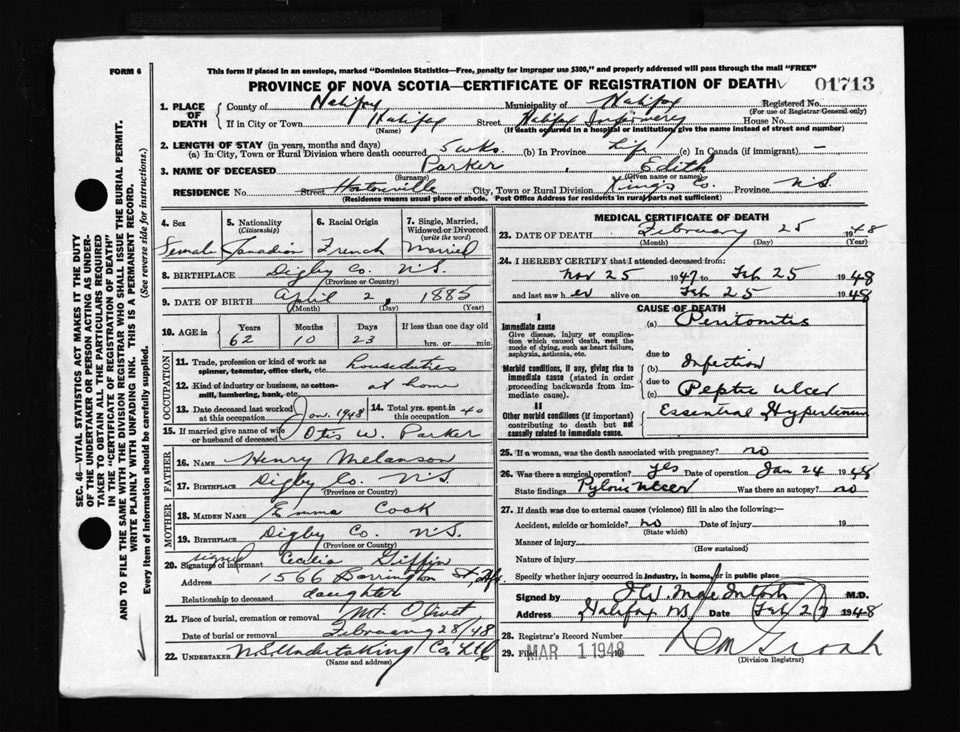 FORM 6
This form if placed in an envelope, marked "Dominion Statistics—Free, penalty for improper use $300," and properly addressed will pass through the mail "FREE"
PROVINCE OF NOVA SCOTIA—CERTIFICATE OF REGISTRATION OF DEATH 01713
1. PLACE OF DEATH County of Halifax Municipality of Halifax Registered No.
(For use of Registrar-General only)
If in City or Town Halifax Street Halifax Infirmary House No.
(Name) (If death occurred in a hospital or institution, give the name instead of street and number)
2. LENGTH OF STAY (in years, months and days)
(a) In City, Town or Rural Division where death occurred 5 wks. (b) In Province Life (c) In Canada (if immigrant) —
3. NAME OF DECEASED Parker, Edith
(Surname) (Given name or names)
RESIDENCE No. Street Hortonville City, Town or Rural Division Kings Co. Province N.S.
(Residence means usual place of abode. Post Office Address for residents in rural parts not sufficient)
4. Sex Female
5. Nationality (Citizenship) Canadian
6. Racial Origin French
7. Single, Married, Widowed or Divorced (write the word) Married
8. BIRTHPLACE Digby Co. N.S.
(Province or Country)
9. DATE OF BIRTH April 2, 1885
(Month) (Day) (Year)
10. AGE in Years Months Days If less than one day old
62 10 23 hrs. or min.
OCCUPATION
11. Trade, profession or kind of work as spinner, teamster, office clerk, etc. housduties
12. Kind of industry or business, as cotton-mill, lumbering, bank, etc. at home
13. Date deceased last worked at this occupation Jan. 1948
14. Total yrs. spent in this occupation 40
15. If married give name of wife or husband of deceased Otis W. Parker
FATHER
16. NAME Henry Melanson
17. BIRTHPLACE Digby Co. N.S.
(Province or Country)
MOTHER
18. MAIDEN NAME Emma Cook
19. BIRTHPLACE Digby Co. N.S.
(Province or Country)
signed
20. Signature of informant Cecilia Giffin
Address 1566 Barrington St, Hfx.
Relationship to deceased daughter
21. Place of burial, cremation or removal Mt. Olivet
Date of burial or removal February 28/48
22. UNDERTAKER N.S. Undertaking Co. Ltd
(Name and address)
MEDICAL CERTIFICATE OF DEATH
23. DATE OF DEATH February 25 1948
(Month) (Day) (Year)
24. I HEREBY CERTIFY that I attended deceased from:
Nov 25 1947 to Feb 25 1948
and last saw her alive on Feb 25 1948
CAUSE OF DEATH
I
Immediate cause
Give disease, injury or complication which caused death, not the mode of dying, such as heart failure, asphyxia, asthenia, etc.
(a) Peritonitis
due to
Morbid conditions, if any, giving rise to immediate cause (stated in order proceeding backwards from immediate cause).
(b) Infection
due to
(c) Peptic Ulcer
II
Other morbid conditions (if important) contributing to death but not causally related to immediate cause.
Essential Hypertension
25. If a woman, was the death associated with pregnancy? no
26. Was there a surgical operation? yes Date of operation Jan 24 1948
State findings Pyloric Ulcer Was there an autopsy? no
27. If death was due to external causes (violence) fill in also the following:
Accident, suicide or homicide? no Date of injury 19
(State which)
Manner of injury
(How sustained)
Nature of injury
Specify whether injury occurred in industry, in home, or in public place
Signed by J.W. MacIntosh M.D.
Address Halifax NS Date Feb 27 1948
28. Registrar's Record Number
29. Filed MAR 1 1948 19
(Division Registrar)
SEC. 46—VITAL STATISTICS ACT MAKES IT THE DUTY
OF THE UNDERTAKER OR PERSON ACTING AS UNDER-
TAKER TO OBTAIN ALL THE PARTICULARS REQUIRED
IN THE "CERTIFICATE OF REGISTRATION OF DEATH"
AND TO FILE THE SAME WITH THE DIVISION REGISTRAR WHO SHALL ISSUE THE BURIAL PERMIT.
WRITE PLAINLY WITH UNFADING INK. THIS IS A PERMANENT RECORD.
Every item of information should be carefully supplied. (See reverse side for instructions.)